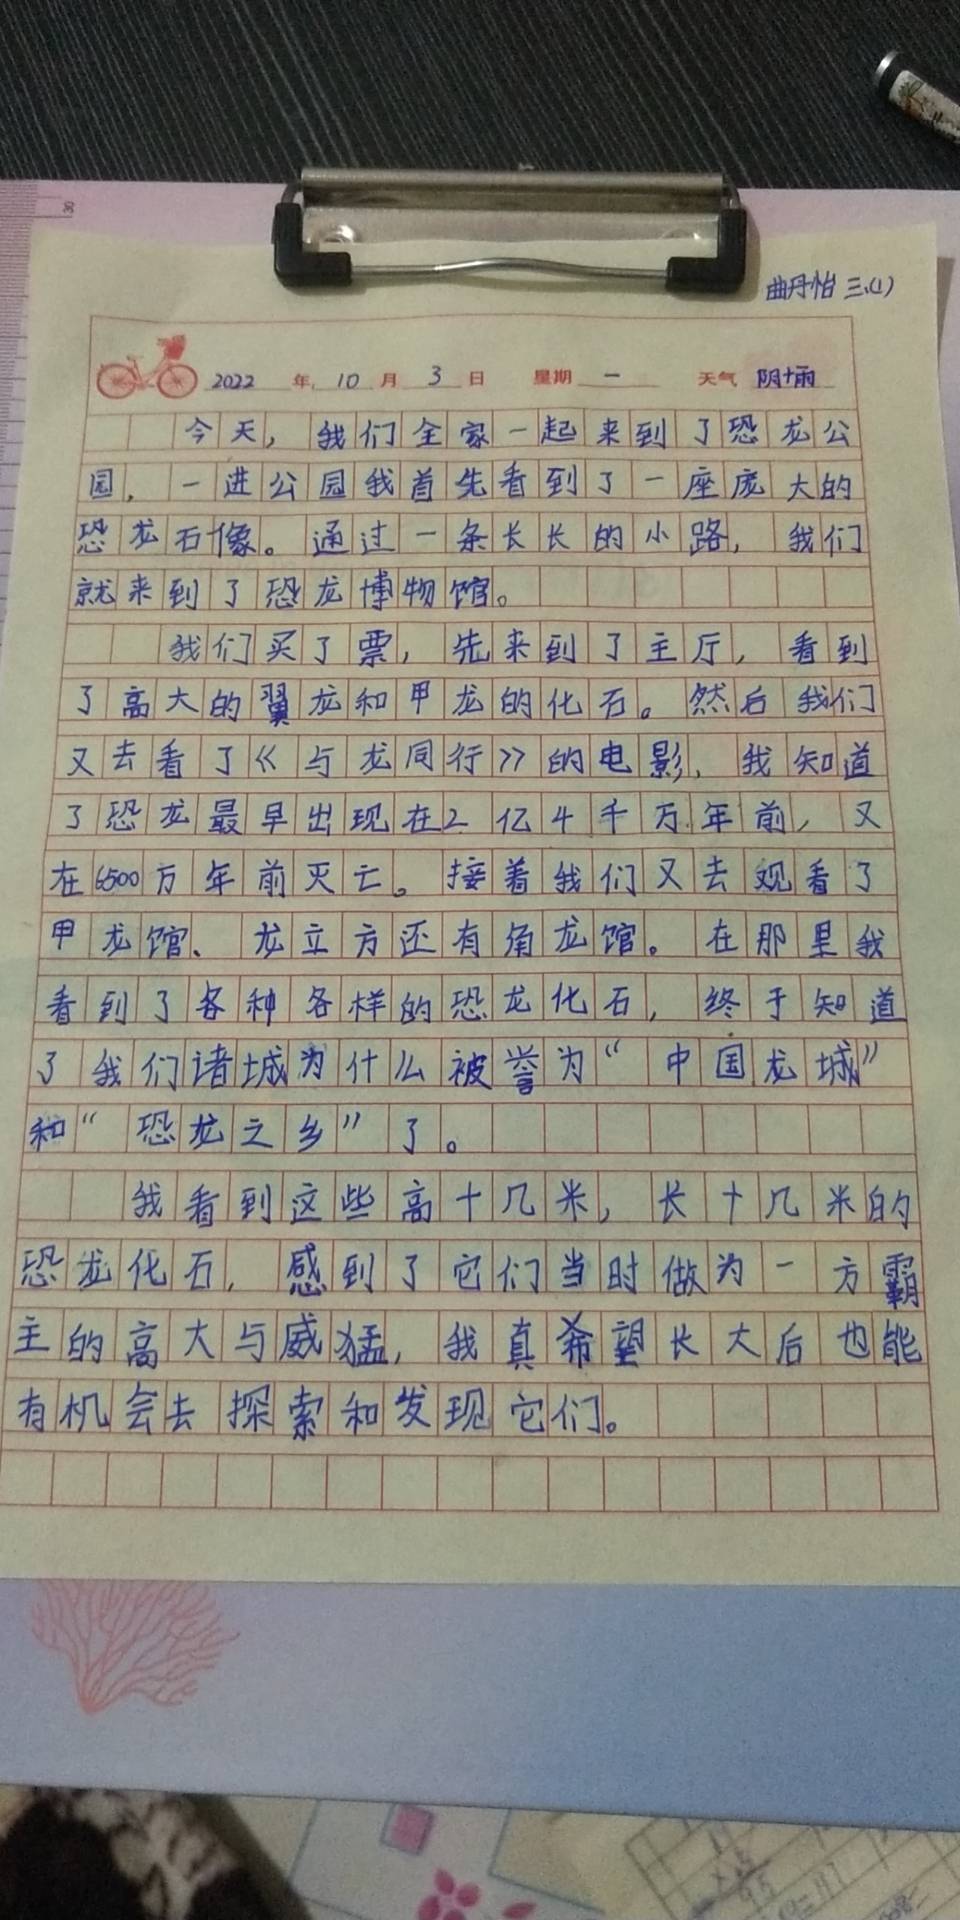 30
曲丹怡 三、(1)
2022 年 10 月 3 日 星期 一 天气 阴+雨
今天，我们全家一起来到了恐龙公
园，一进公园我首先看到了一座庞大的
恐龙石像。通过一条长长的小路，我们
就来到了恐龙博物馆。
我们买了票，先来到了主厅，看到
了高大的翼龙和甲龙的化石。然后我们
又去看了《与龙同行》的电影，我知道
了恐龙最早出现在2亿4千万年前，又
在6500万年前灭亡。接着我们又去观看了
甲龙馆、龙立方还有角龙馆。在那里我
看到了各种各样的恐龙化石，终于知道
了我们诸城为什么被誉为“中国龙城”
和“恐龙之乡”了。
我看到这些高十几米，长十几米的
恐龙化石，感到了它们当时做为一方霸
主的高大与威猛，我真希望长大后也能
有机会去探索和发现它们。